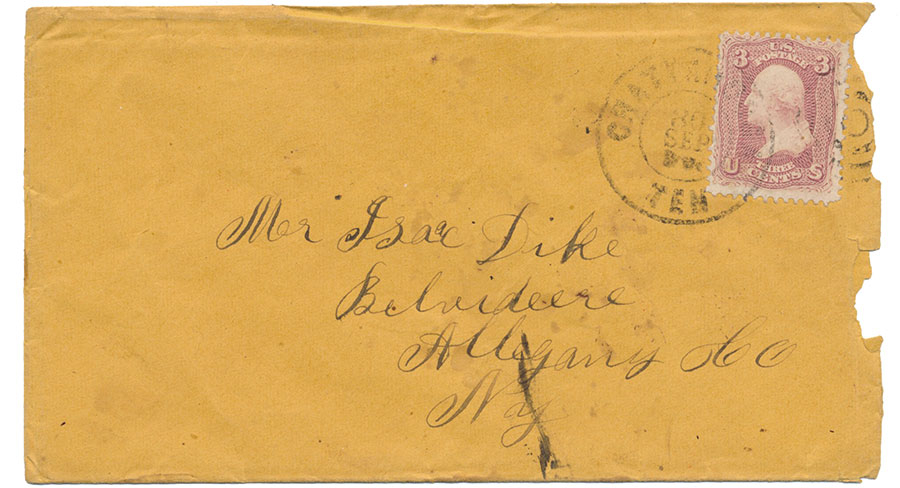 3 U.S. 3
POSTAGE
THREE
U CENTS S
30
SEP
TEN
Mr Isac Dike
Belvideere
Allegany Co
Ny